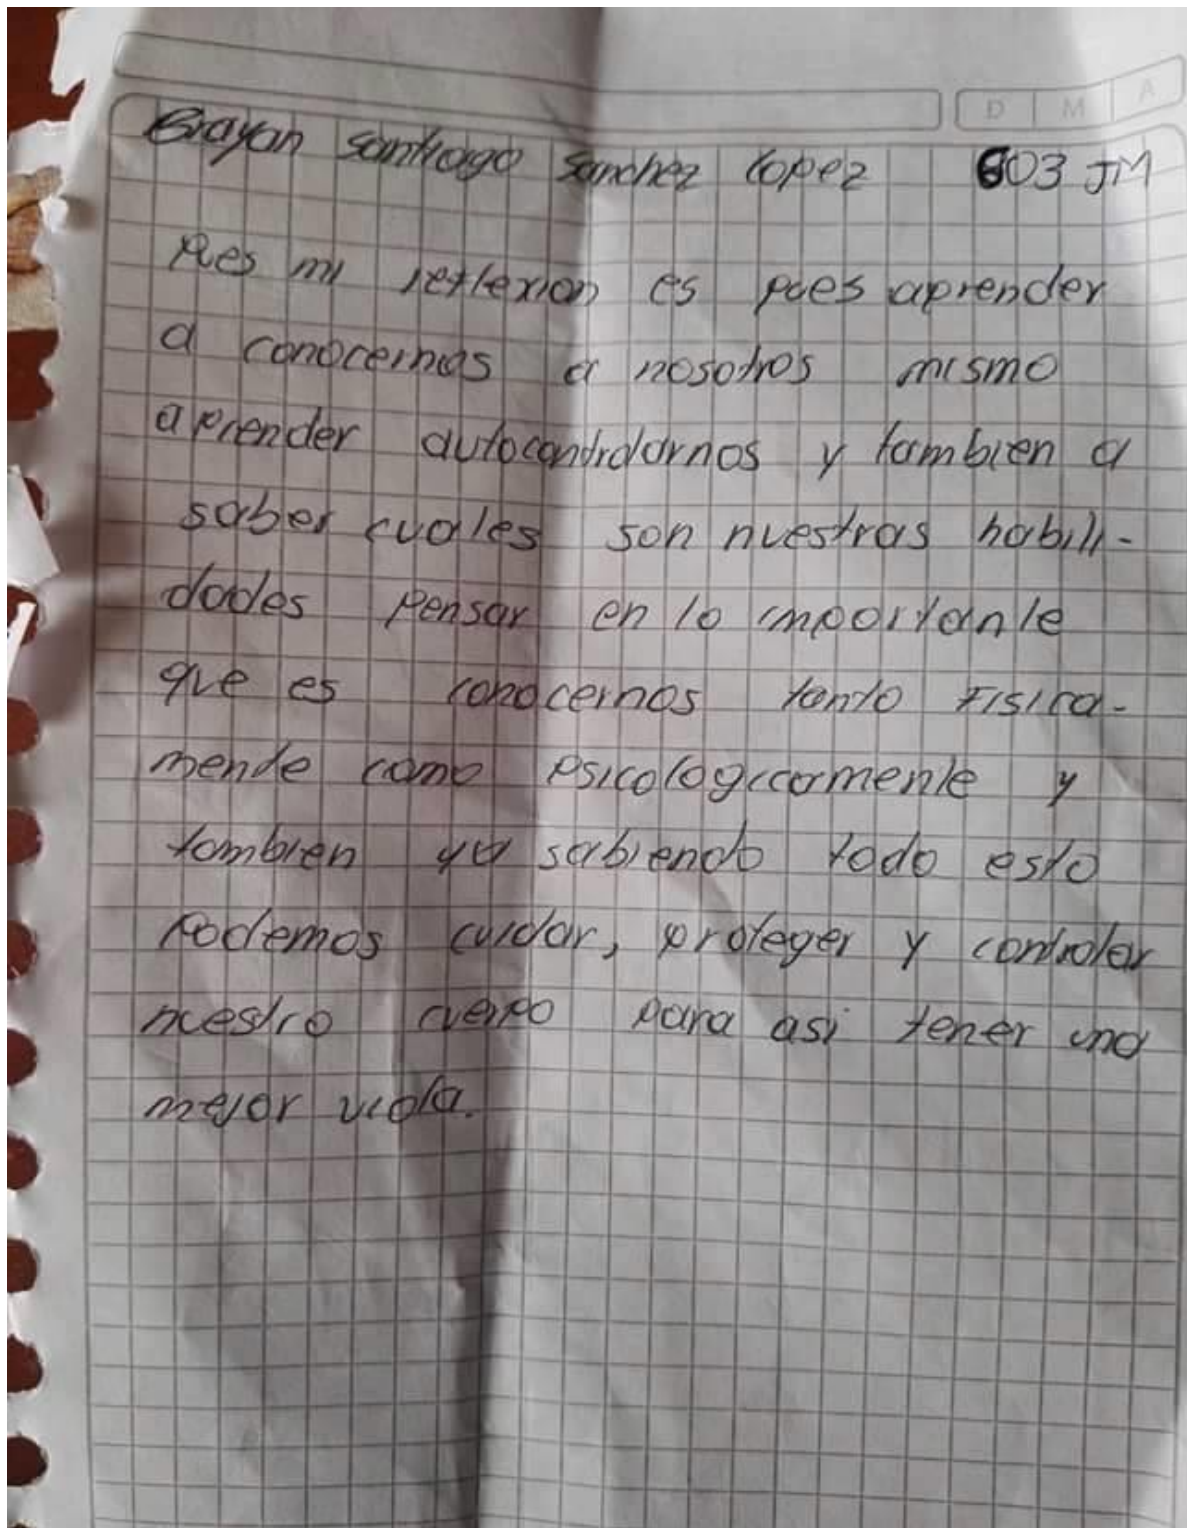 D M A
Brayan Santiago Sanchez Lopez 603 JM
Pues mi reflexion es pues aprender
a conocernos a nosotros mismo
aprender autocontrolarnos y tambien a
saber cuales son nuestras habili-
dades pensar en lo importante
que es conocernos tanto fisica-
mente como psicologicamente y
tambien ya sabiendo todo esto
podemos cuidar, proteger y controlar
nuestro cuerpo para asi tener una
mejor vida.